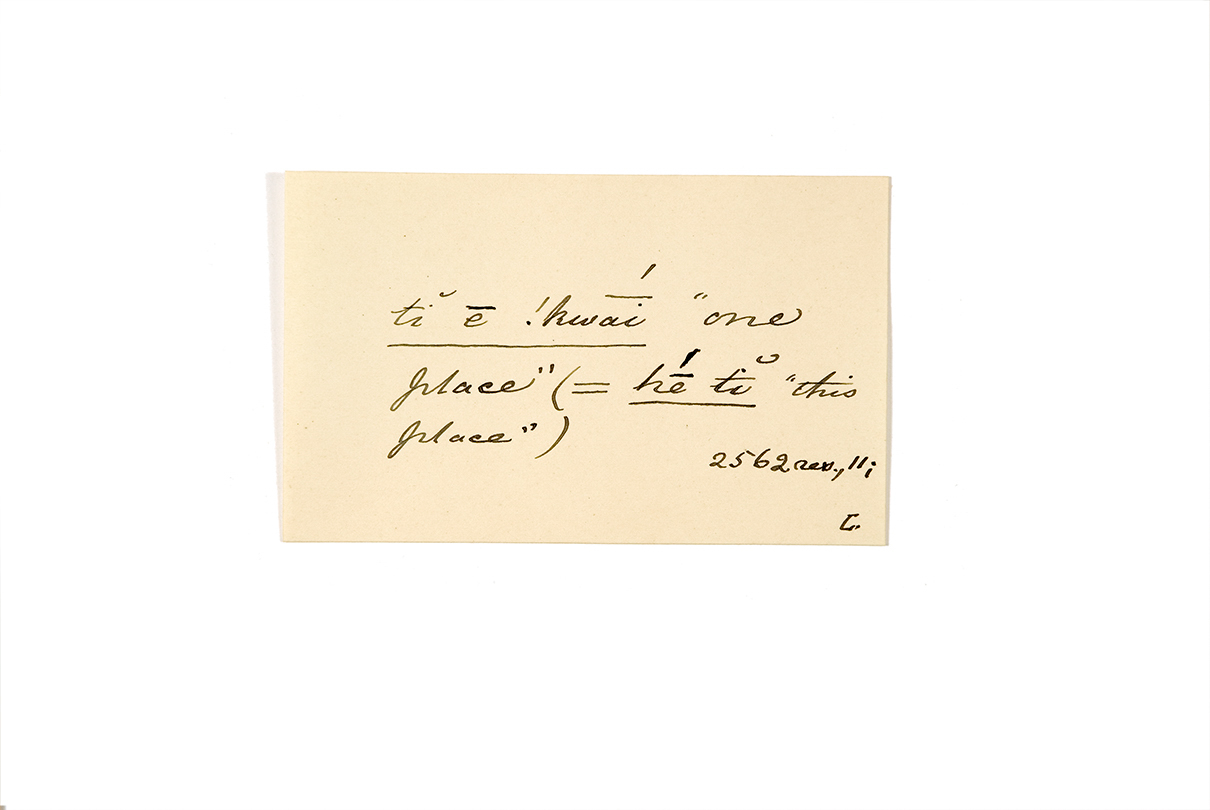 tĭ ē !kwā́i "one
place" (= hḗ tĭ "this
place")
2562 rev., 11;
L.